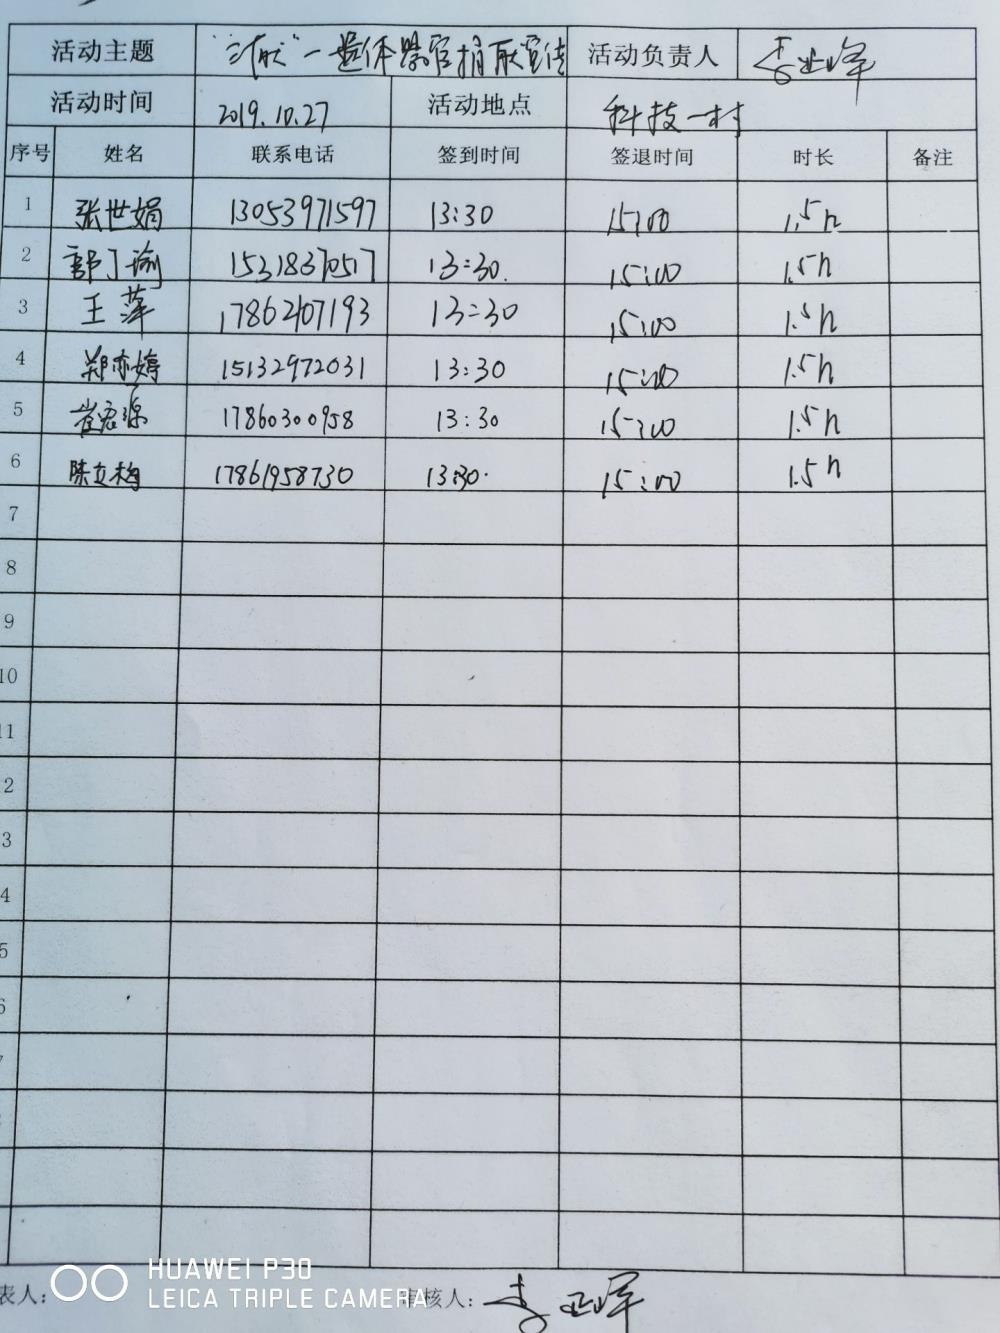 活动主题 一遗体器官捐献宣传 活动负责人 李亚峰
活动时间 2019.10.27 活动地点 科技一村
序号 姓名 联系电话 签到时间 签退时间 时长 备注
1 张世娟 13053971597 13:30 15:00 1.5h
2 郭丁瑜 15318370517 13:30. 15:00 1.5h
3 王萍 17862107193 13:30 15:00 1.5h
4 郑亦婷 15132972031 13:30 15:00 1.5h
5 崔宏源 17860300958 13:30 15:00 1.5h
6 陈立梅 17861958730 13:30. 15:00 1.5h
7
8
9
10
11
2
3
4
5
6
表人: 审核人: 李亚峰
HUAWEI P30
LEICA TRIPLE CAMERA